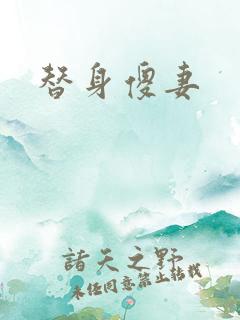 替身傻妻
諸天之野
未任同意禁止抟载